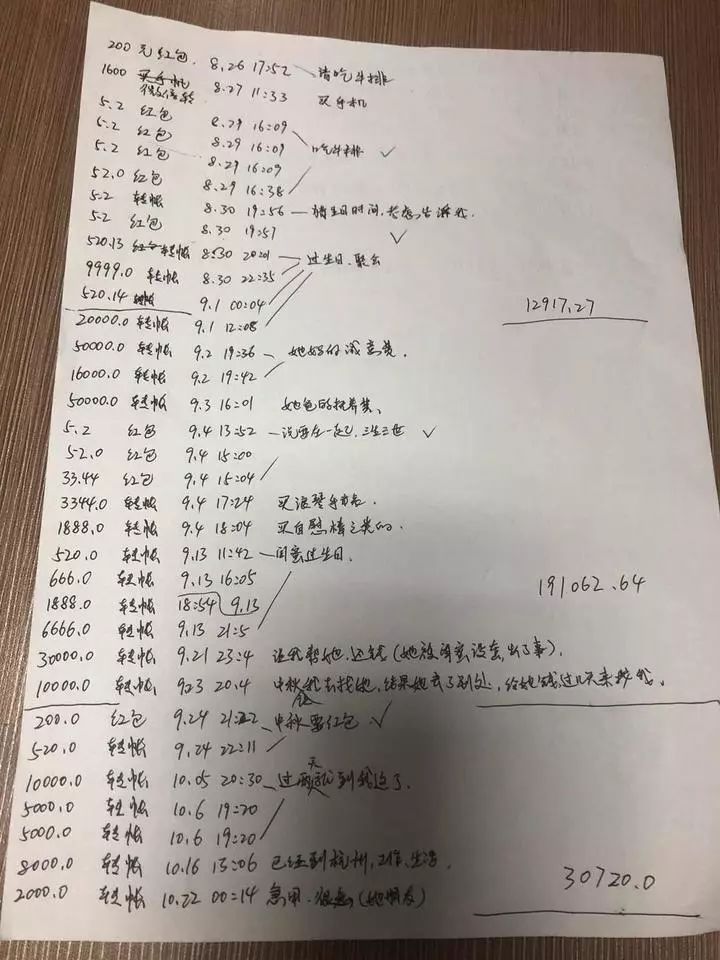 200 元 红包 8.26 17:52 — 请吃牛排
1600 买手机 微信转 8.27 11:33 买手机
5.2 红包 8.29 16:09
5.2 红包 8.29 16:09 吃牛排 ✓
5.2 红包 8.29 16:09
52.0 红包 8.29 16:38
5.2 转帐 8.30 19:56 — 猜生日时间,告诉我.
5.2 红包 8.30 19:57 ✓
520.13 红包 转帐 8.30 20:01
9999.0 转帐 8.30 22:35 过生日、聚会
520.14 转帐 9.1 00:04 12917.27
20000.0 转帐 9.1 12:08
50000.0 转帐 9.2 19:36 — 她妈的
16000.0 转帐 9.2 19:42
50000.0 转帐 9.3 16:01 她爸的抚养费、
5.2 红包 9.4 13:52 — 说要在一起,三生三世 ✓
52.0 红包 9.4 15:00
33.44 红包 9.4 15:04
3344.0 转帐 9.4 17:24 买浪琴手表.
1888.0 转帐 9.4 18:04 买自慰棒之类的.
520.0 转帐 9.13 11:42 — 闺蜜过生日.
666.0 转帐 9.13 16:05 191062.64
1888.0 转帐 18:54 9.13
6666.0 转帐 9.13 21:5
30000.0 转帐 9.21 23:4 让我帮她,还钱(她被闺蜜设套,出了事).
10000.0 转帐 9.23 20.4 中秋我去找她,结果她去了别处,给她钱过几天来找我.
200.0 红包 9.24 21:22 — 中秋要红包 ✓
520.0 转帐 9.24 22:11
10000.0 转帐 10.05 20:30 — 过两天就到我这了.
5000.0 转帐 10.6 19:20
5000.0 转帐 10.6 19:20
8000.0 转帐 10.16 13:06 已经到杭州,工作、生活.
2000.0 转帐 10.22 00:14 急用、很急(她朋友) 30720.0